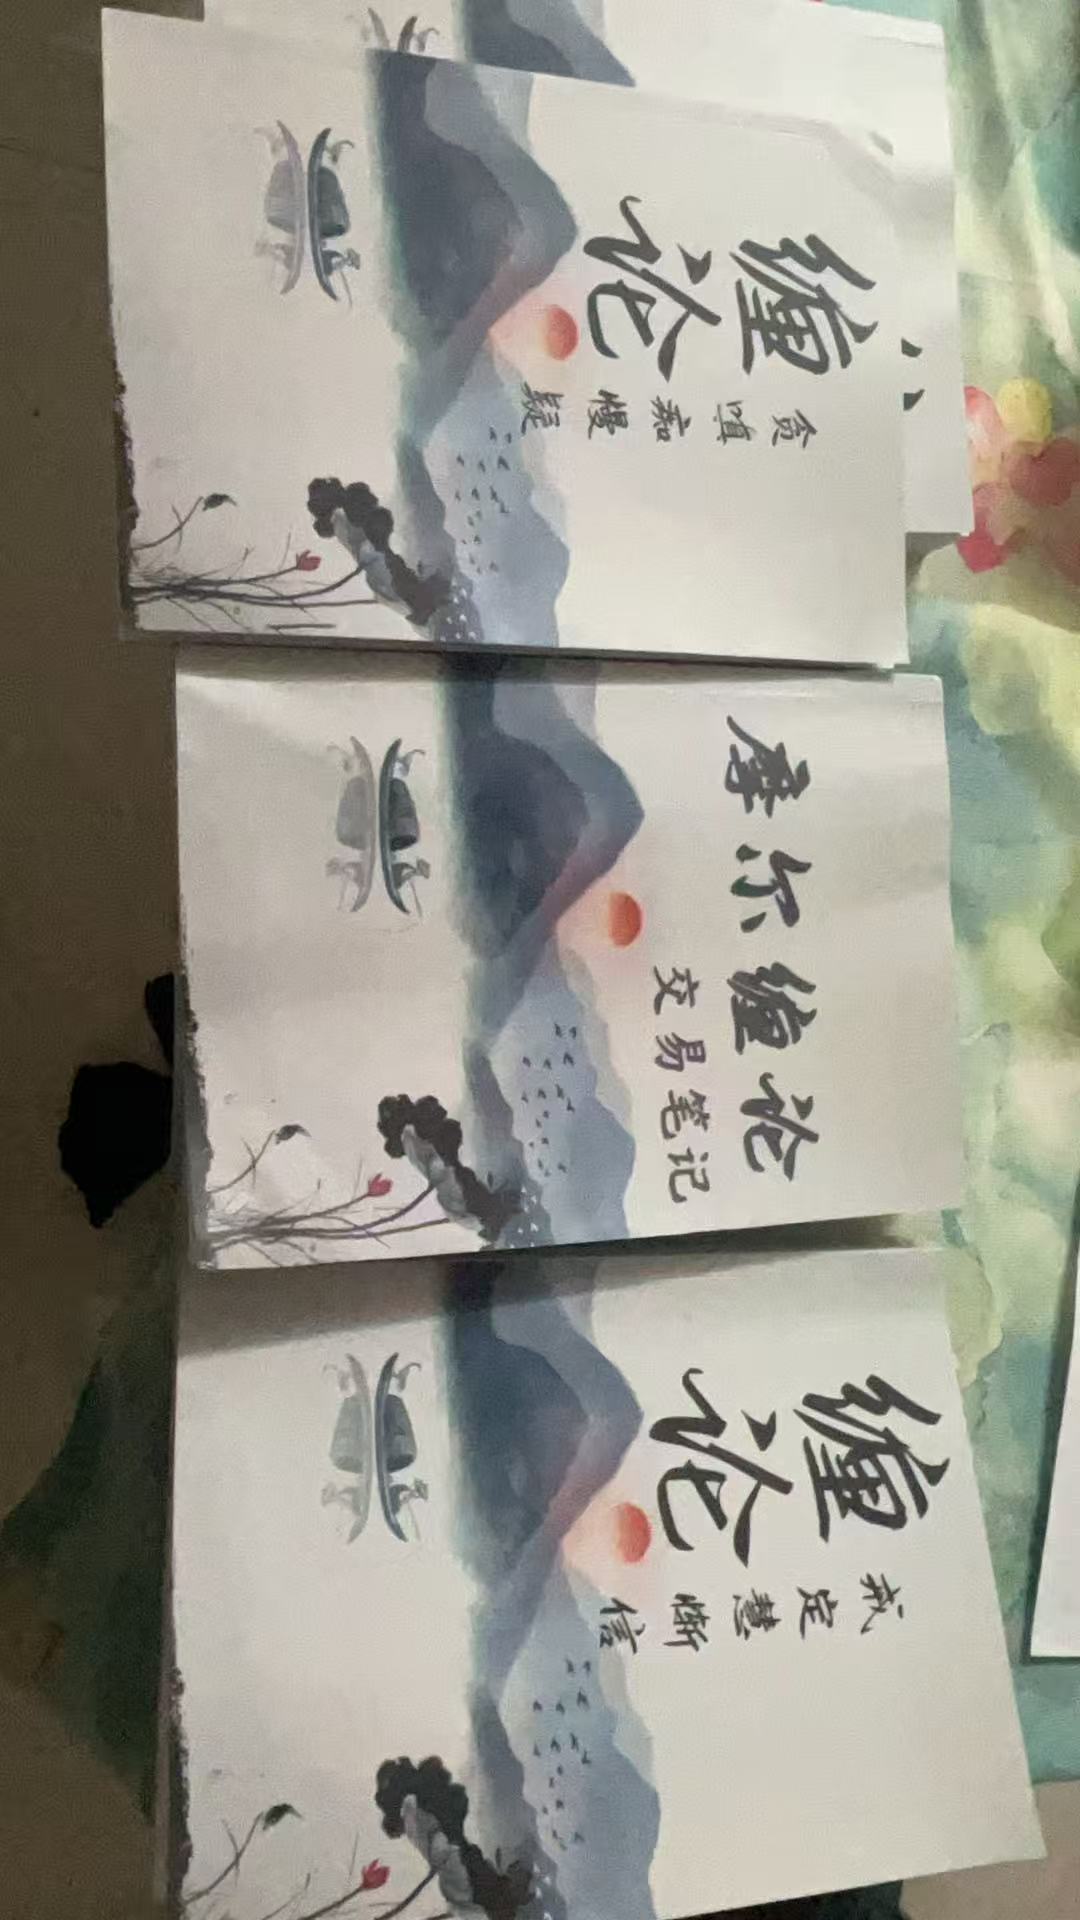 缠论
贪嗔痴慢疑
摩尔缠论
交易笔记
缠论
戒定慧惭信